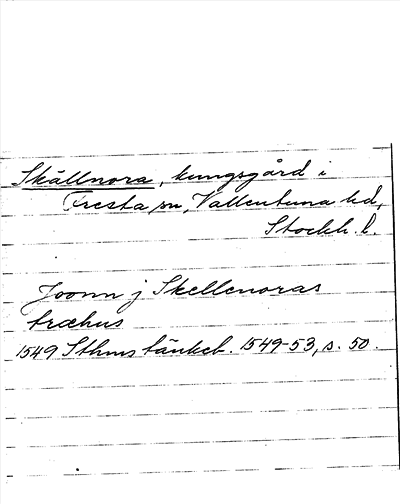 Skällnora, kungsgård i
Fresta sn, Vallentuna hd,
Stockh. l.
Joonn j Skellenoras
træhus
1549 Sthms tänkeb. 1549-53, s. 50.